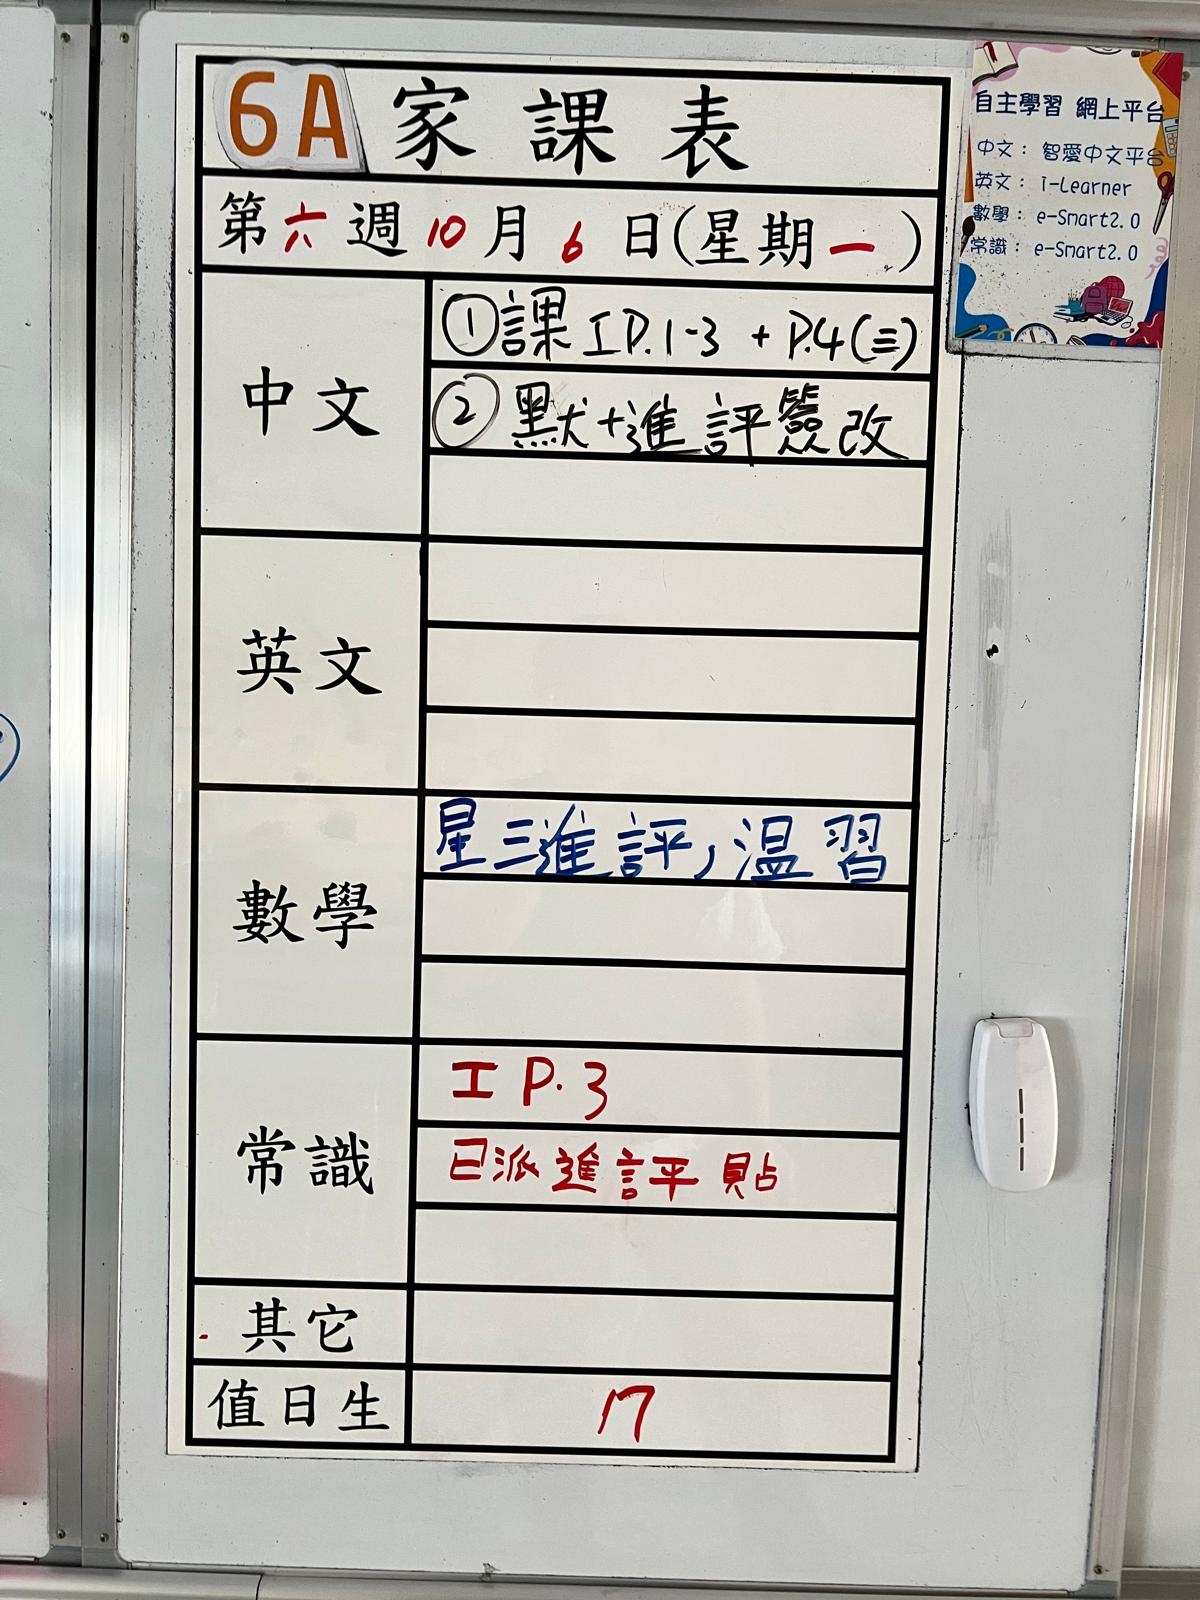 6A 家課表
第六週10月6日(星期一)
中文
①課工P.1-3 + P.4(三)
②默+進評簽改
英文
數學
星三進評，溫習
常識
工 P.3
已派進評貼
其它
值日生
17
自主學習 網上平台
中文：智愛中文平台
英文：i-Learner
數學：e-Smart2.0
常識：e-Smart2.0